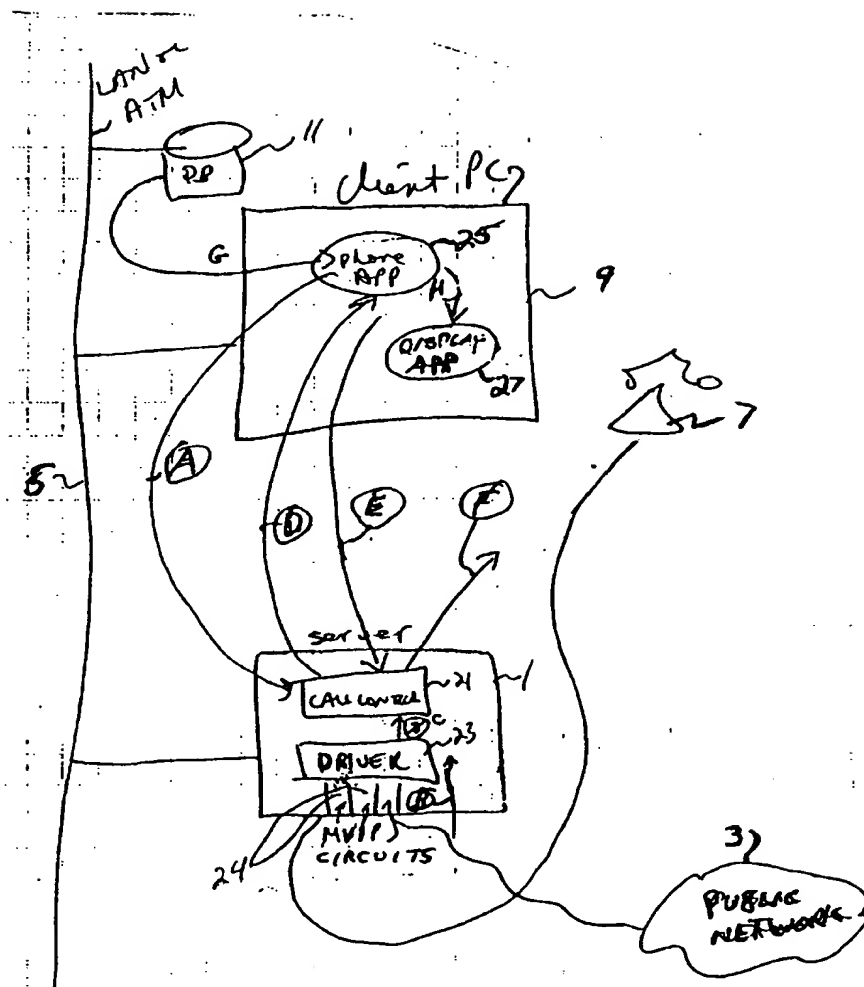 LAN or
ATM
11
DB
Client PC
G
25
phone
APP
H
9
DISPLAY
APP
27
7
5
A
D
E
F
server
1
CALL CONTROL
21
C
23
DRIVER
B
MVIP
CIRCUITS
24
3
PUBLIC
NETWORK